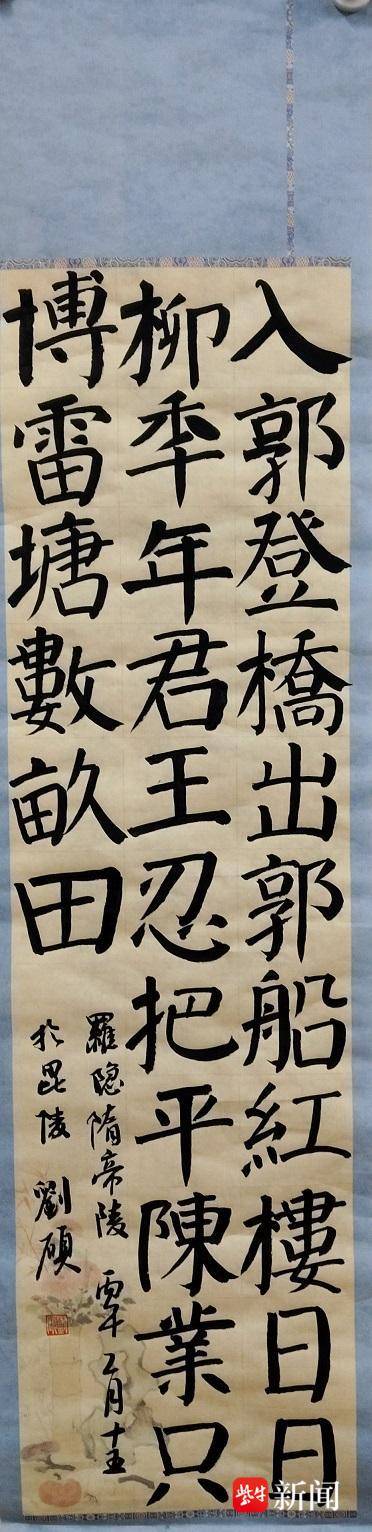 入郭登橋出郭船紅樓日日
柳年年君王忍把平陳業只
博雷塘數畝田
羅隐隋帝陵 丙午二月十五
於毘陵 劉碩
紫牛新闻